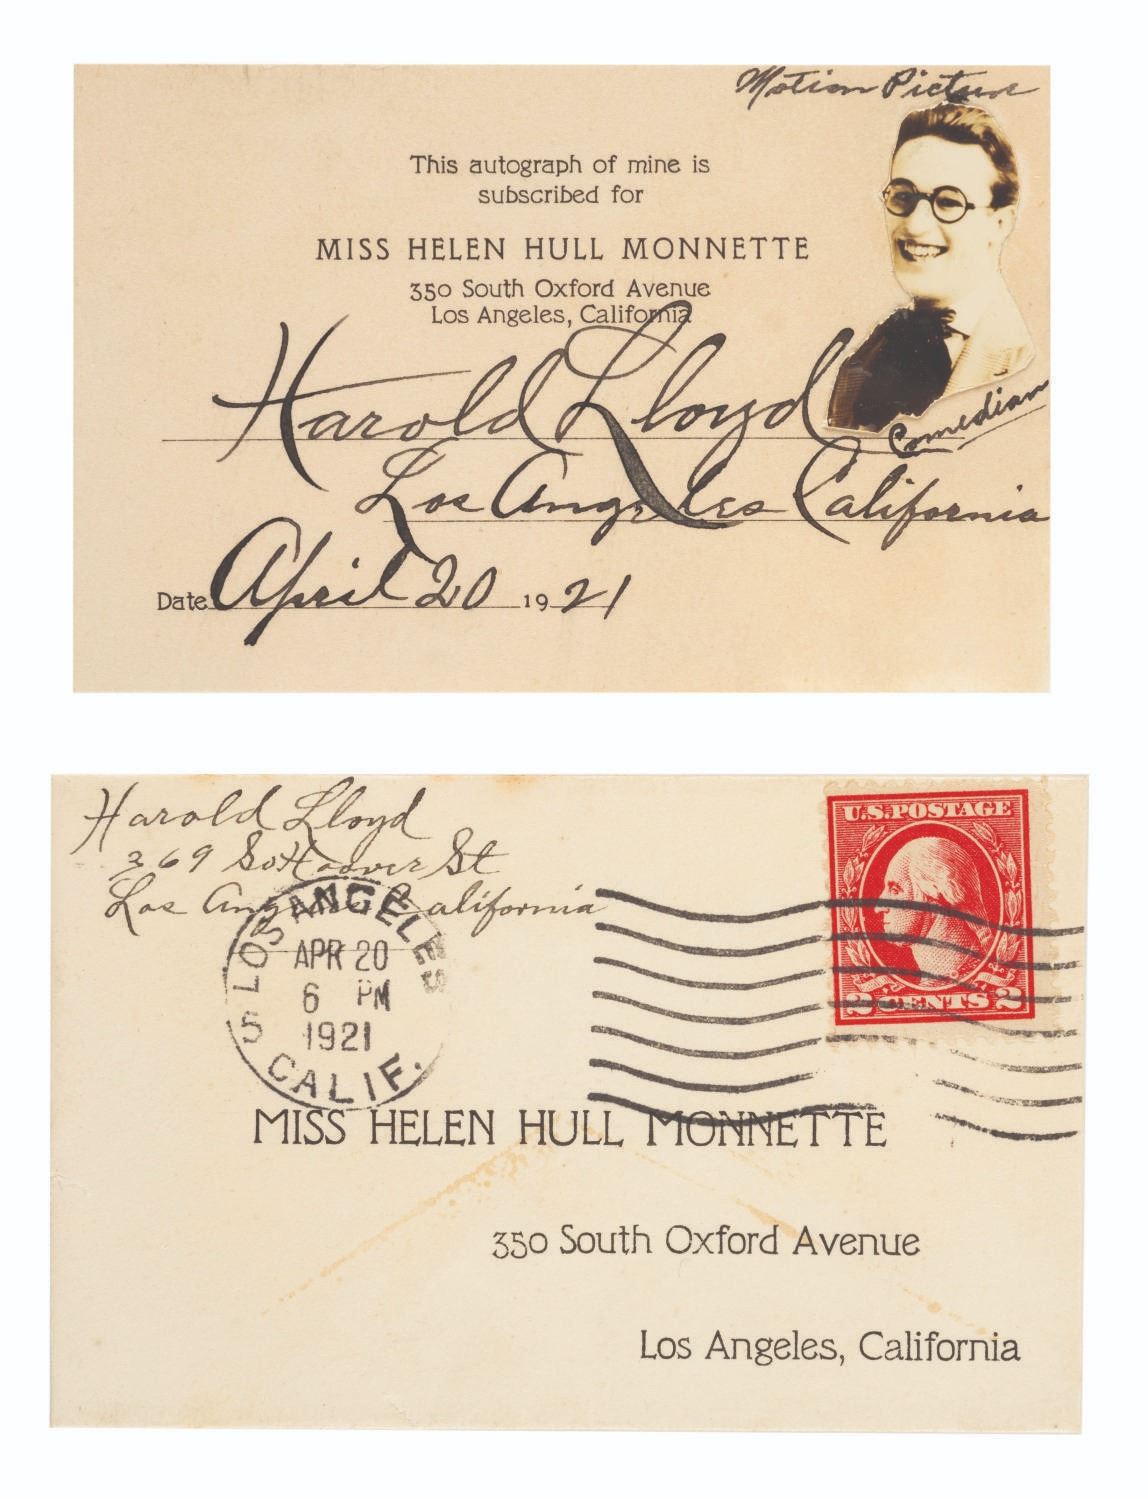 Motion Picture
This autograph of mine is
subscribed for
MISS HELEN HULL MONNETTE
350 South Oxford Avenue
Los Angeles, California
Harold Lloyd
Comedian
Los Angeles California
Date April 20 1921
Harold Lloyd
369 So Hoover St
Los Angeles California
U.S. POSTAGE
2 CENTS 2
LOS ANGELES
APR 20
6 PM
1921
5
CALIF.
MISS HELEN HULL MONNETTE
350 South Oxford Avenue
Los Angeles, California